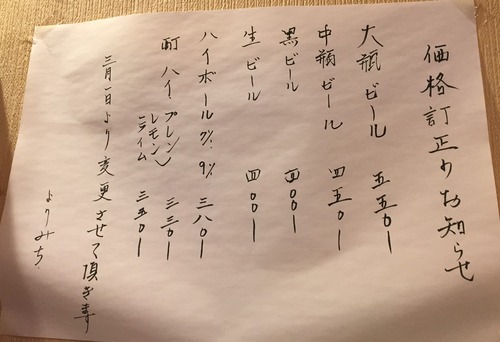 価格訂正のお知らせ
大瓶ビール 五五〇ー
中瓶ビール 四五〇ー
黒ビール 四〇〇ー
生ビール 四〇〇ー
ハイボール 7%・9% 三八〇ー
酎ハイ・プレーン 三三〇ー
レモン
ライム 三五〇ー
三月一日より変更させて頂きます
よりみち